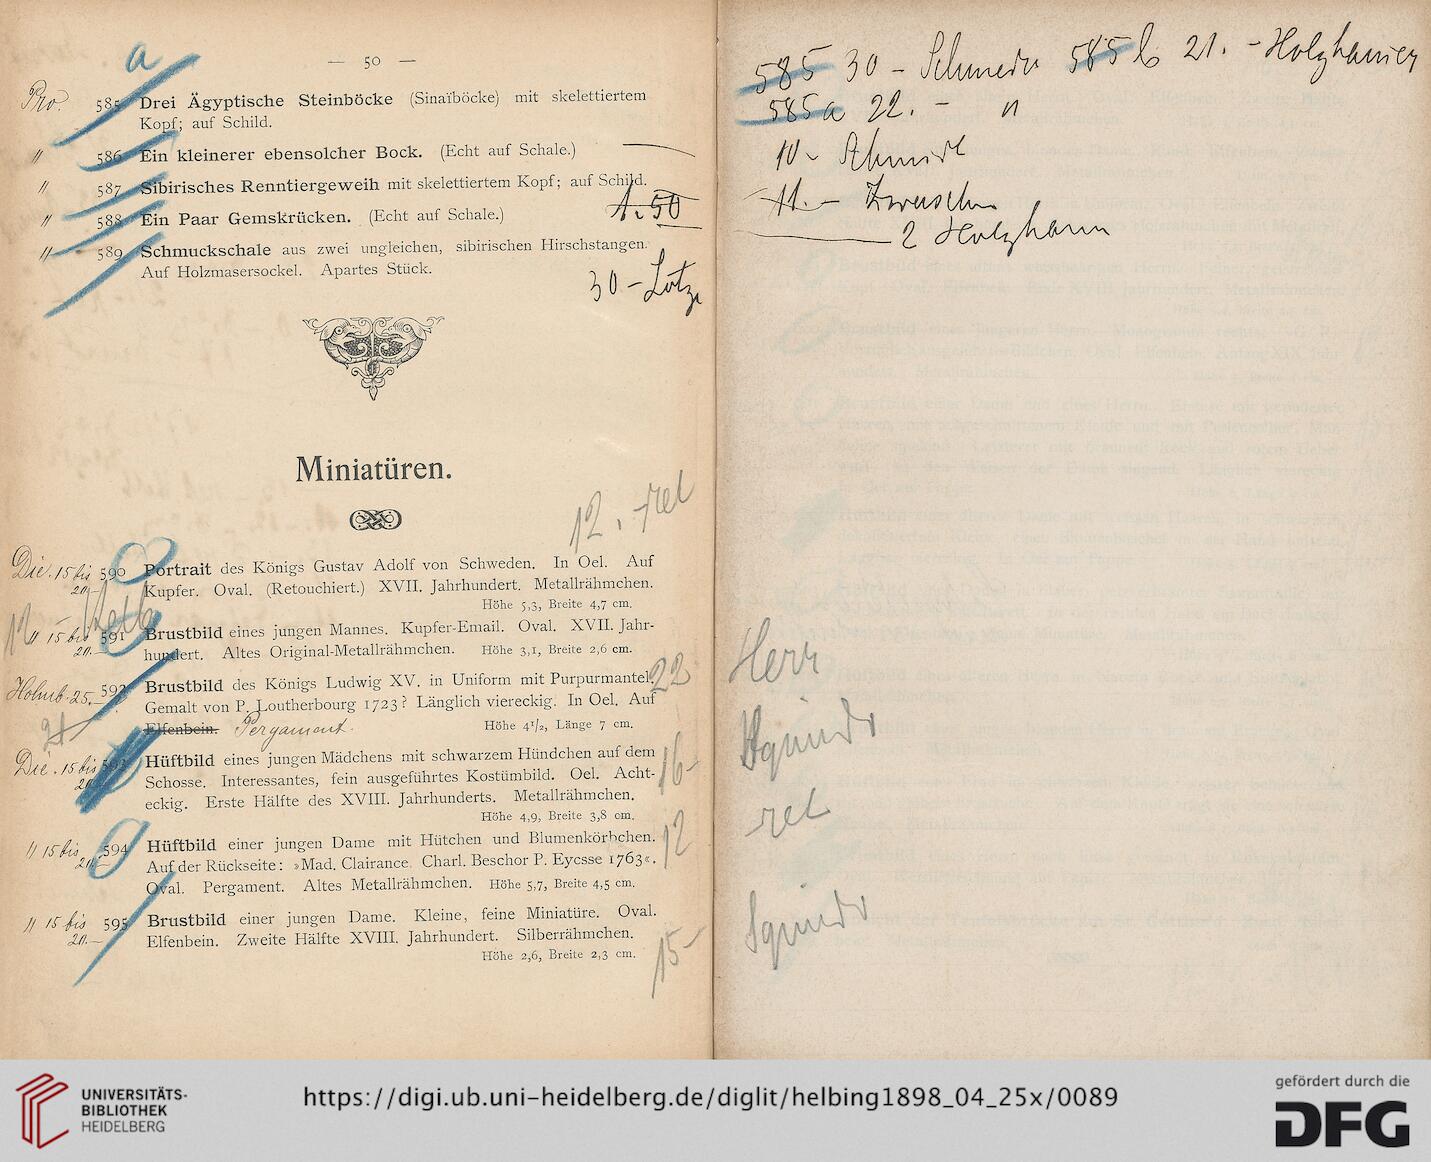 a
— 50 —
Pro. 585 Drei Ägyptische Steinböcke (Sinaïböcke) mit skelettiertem
Kopf; auf Schild.
" 586 Ein kleinerer ebensolcher Bock. (Echt auf Schale.)
" 587 Sibirisches Renntiergeweih mit skelettiertem Kopf; auf Schild.
" 588 Ein Paar Gemskrücken. (Echt auf Schale.)
" 589 Schmuckschale aus zwei ungleichen, sibirischen Hirschstangen.
Auf Holzmasersockel. Apartes Stück.
30 -
Miniatüren.
12. ret
Die. 15 bis 590 Portrait des Königs Gustav Adolf von Schweden. In Oel. Auf
20.- Kupfer. Oval. (Retouchiert.) XVII. Jahrhundert. Metallrähmchen.
Höhe 5,3, Breite 4,7 cm.
" 15 bis 591 Brustbild eines jungen Mannes. Kupfer-Email. Oval. XVII. Jahr-
20.- hundert. Altes Original-Metallrähmchen. Höhe 3,1, Breite 2,6 cm.
25.- 592 Brustbild des Königs Ludwig XV. in Uniform mit Purpurmantel. 22
Gemalt von P. Loutherbourg 1723? Länglich viereckig. In Oel. Auf
Elfenbein. Pergament. Höhe 4¹/₂, Länge 7 cm.
Die. 15 bis 593 Hüftbild eines jungen Mädchens mit schwarzem Hündchen auf dem
20.- Schosse. Interessantes, fein ausgeführtes Kostümbild. Oel. Acht- 16-
eckig. Erste Hälfte des XVIII. Jahrhunderts. Metallrähmchen.
Höhe 4,9, Breite 3,8 cm.
" 15 bis 594 Hüftbild einer jungen Dame mit Hütchen und Blumenkörbchen. 12
20.- Auf der Rückseite: »Mad. Clairance Charl. Beschor P. Eycsse 1763«.
Oval. Pergament. Altes Metallrähmchen. Höhe 5,7, Breite 4,5 cm.
" 15 bis 595 Brustbild einer jungen Dame. Kleine, feine Miniatüre. Oval.
20.- Elfenbein. Zweite Hälfte XVIII. Jahrhundert. Silberrähmchen. 15-
Höhe 2,6, Breite 2,3 cm.
585 30 - 585 b 21. -
585a 22. - "
10 -
11. -
2
Herr
ret
UNIVERSITÄTS-
BIBLIOTHEK
HEIDELBERG
https://digi.ub.uni-heidelberg.de/diglit/helbing1898_04_25x/0089
gefördert durch die
DFG